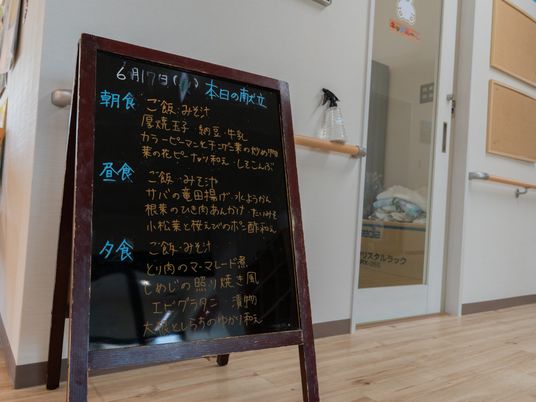 6月17日 本日の献立
朝食 ご飯・みそ汁
厚焼玉子・納豆・牛乳
カラーピーマンとチンゲン菜の炒め物
菜の花ピーナッツ和え・しそこんぶ
昼食 ご飯・みそ汁
サバの竜田揚げ・水ようかん
根菜のひき肉あんかけ・たいみそ
小松菜と桜えびのポン酢和え
夕食 ご飯・みそ汁
とり肉のマーマレード煮
しめじの照り焼き風
エビグラタン・漬物
大根としらすのゆかり和え
リスタルラック